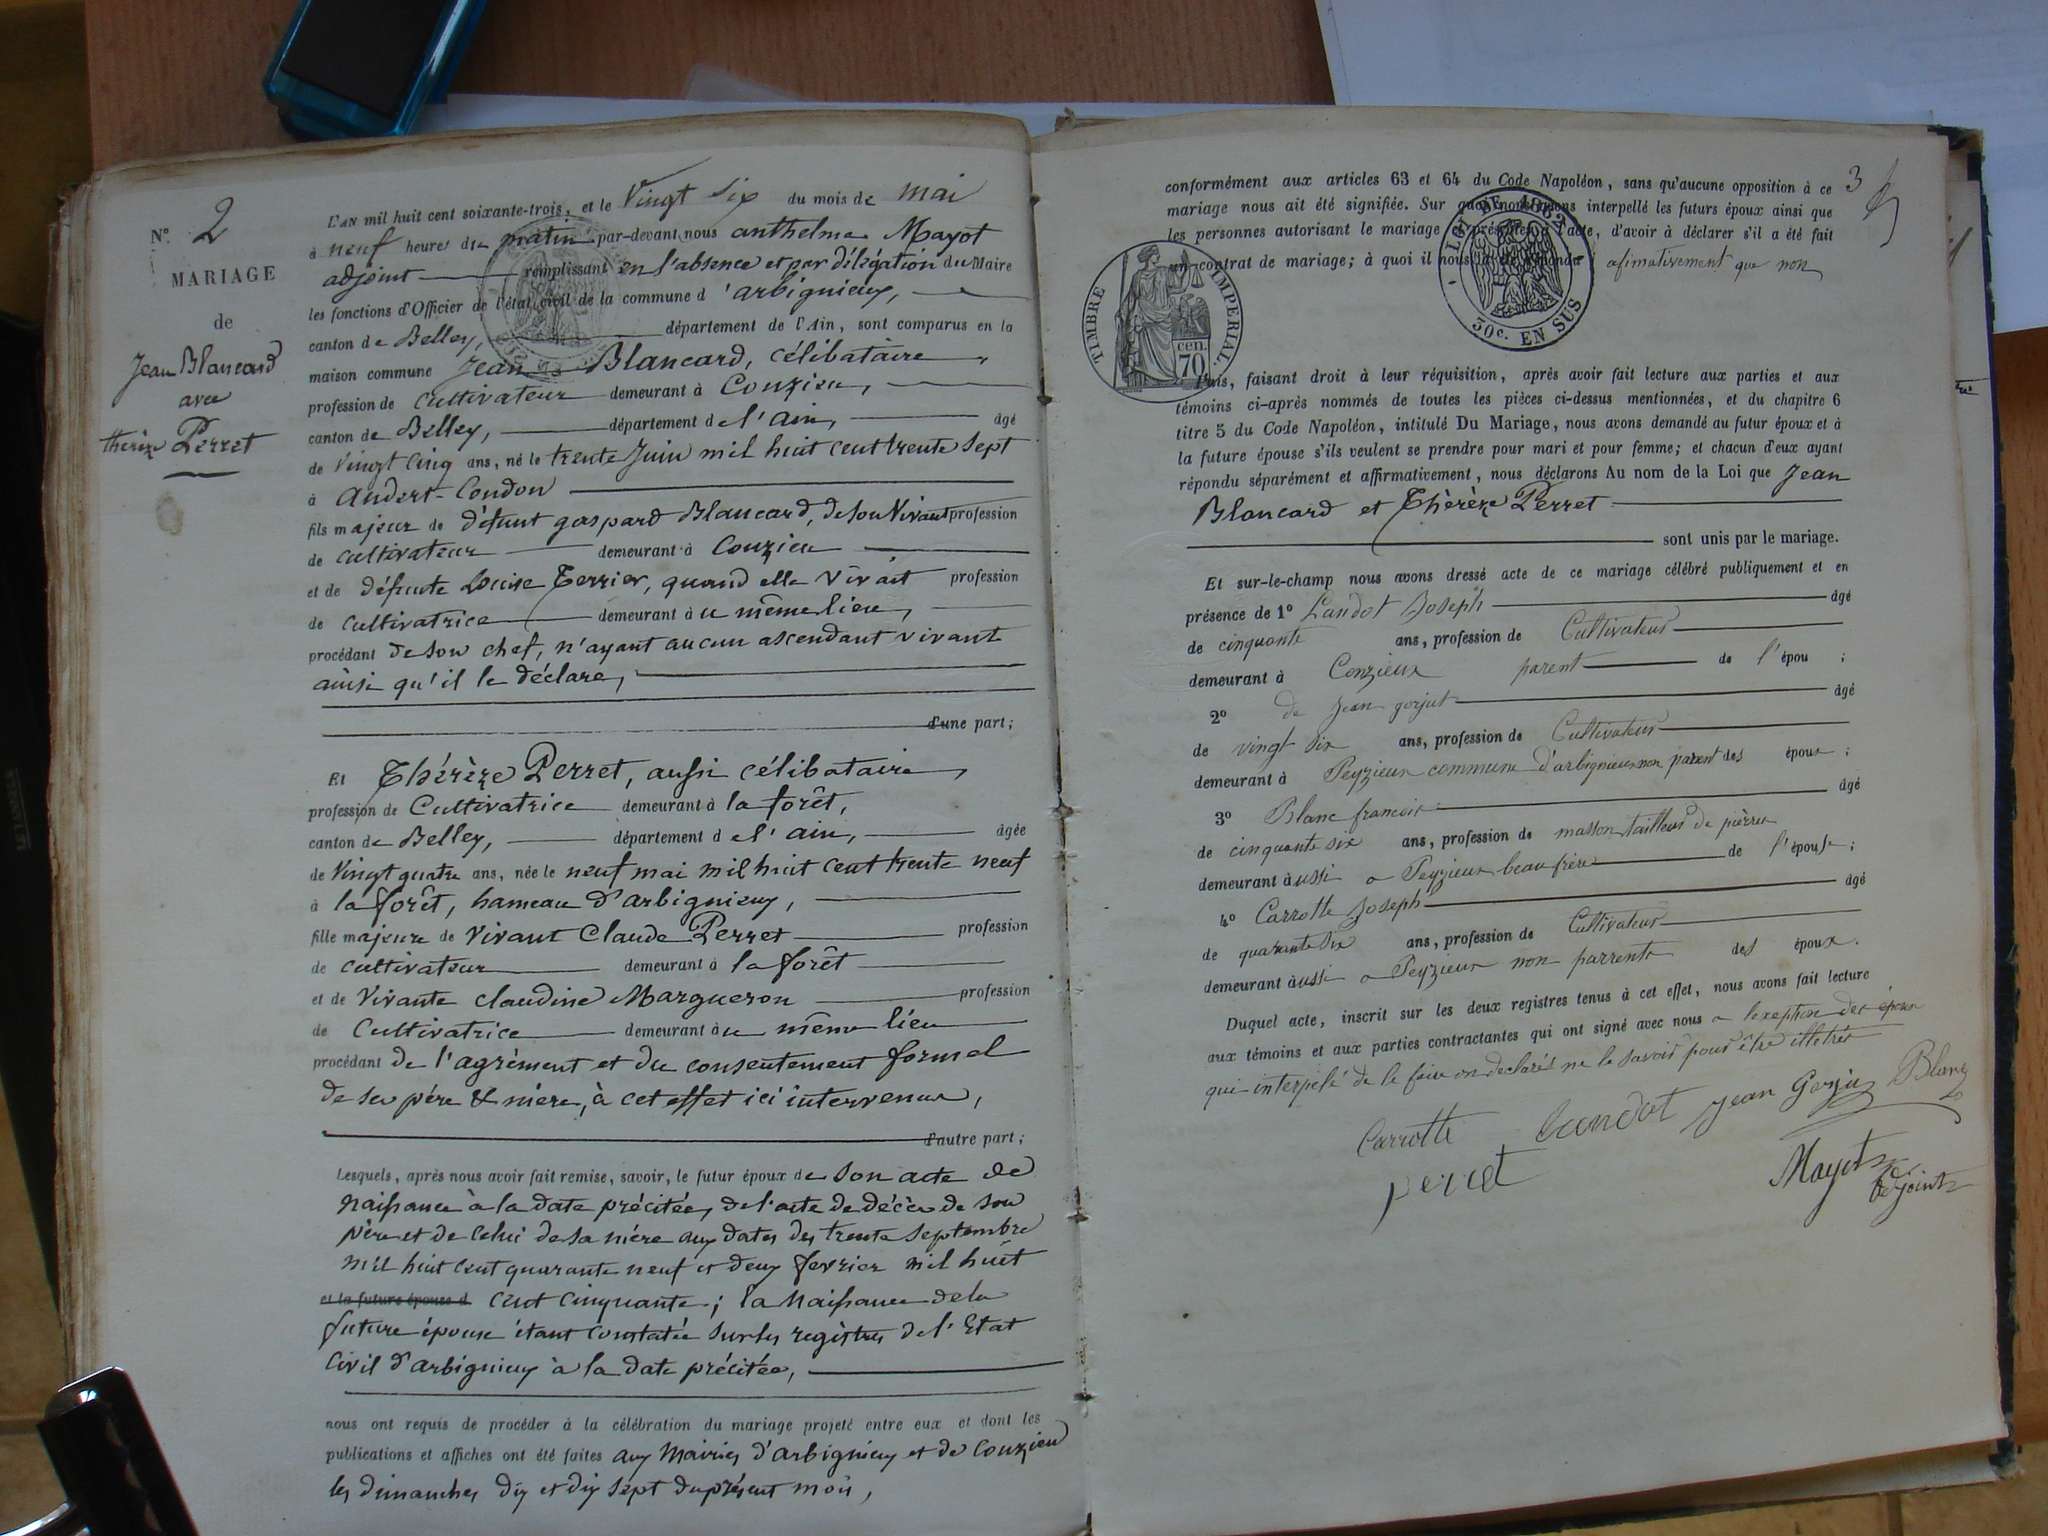 N.° 2
MARIAGE
de
Jean Blancard
avec
thérèze Perret
L'AN mil huit cent soixante-trois, et le Vingt six du mois de mai
à neuf heures du matin par-devant nous anthelme Mayot
adjoint remplissant en l'absence et par délégation du Maire
les fonctions d'Officier de l'état civil de la commune d'arbignieux,
canton de Belley, département de l'Ain, sont comparus en la
maison commune Jean Blancard, célibataire,
profession de cultivateur demeurant à Conzieu,
canton de Belley, département de l'ain, âgé
de Vingt cinq ans, né le trente Juin mil huit cent trente sept
à Andert-Condon
fils majeur de défunt gaspard Blancard, de son Vivant profession
de cultivateur demeurant à Conzieu
et de défunte Louise Terrier, quand elle vivait profession
de cultivatrice demeurant au même lieu,
procédant de son chef, n'ayant aucun ascendant vivant
ainsi qu'il le déclare,
d'une part;
Et Thérèze Perret, aussi célibataire,
profession de Cultivatrice demeurant à la forêt,
canton de Belley, département de l'ain, âgée
de Vingt quatre ans, née le neuf mai mil huit cent trente neuf
à la forêt, hameau d'arbignieux,
fille majeure de vivant Claude Perret profession
de cultivateur demeurant à la forêt
et de vivante claudine Margueron profession
de Cultivatrice demeurant au même lieu
procédant de l'agrément et du consentement formel
de ses père & mère, à cet effet ici intervenus,
d'autre part;
Lesquels, après nous avoir fait remise, savoir, le futur époux de son acte de
naissance à la date précitée, de l'acte de décès de son
père et de celui de sa mère aux dates des trente septembre
mil huit cent quarante neuf et deux fevrier mil huit
et la future épouse d cent cinquante; la naissance de la
future épouse étant constatée sur les registres de l'Etat
Civil d'arbignieux à la date précitée,
nous ont requis de procéder à la célébration du mariage projeté entre eux et dont les
publications et affiches ont été faites aux Mairies d'arbignieux et de Conzieu
les dimanches dix et dix sept du présent mois,
3
conformément aux articles 63 et 64 du Code Napoléon, sans qu'aucune opposition à ce
mariage nous ait été signifiée. Sur quoi nous avons interpellé les futurs époux ainsi que
les personnes autorisant le mariage et présentes à l'acte, d'avoir à déclarer s'il a été fait
un contrat de mariage; à quoi il nous a été répondu afimativement que non
TIMBRE IMPERIAL.
cen. 70
LOI DE 1862
50c. EN SUS
Puis, faisant droit à leur réquisition, après avoir fait lecture aux parties et aux
témoins ci-après nommés de toutes les pièces ci-dessus mentionnées, et du chapitre 6
titre 5 du Code Napoléon, intitulé Du Mariage, nous avons demandé au futur époux et à
la future épouse s'ils veulent se prendre pour mari et pour femme; et chacun d'eux ayant
répondu séparément et affirmativement, nous déclarons Au nom de la Loi que Jean
Blancard et Thérèze Perret
sont unis par le mariage.
Et sur-le-champ nous avons dressé acte de ce mariage célébré publiquement et en
présence de 1° Landot Joseph âgé
de cinquante ans, profession de Cultivateur
demeurant à Conzieux parent de l'épou ;
2° de Jean gorjut âgé
de vingt six ans, profession de Cultivateur
demeurant à Peyzieux commune d'arbignieux non parent des époux ;
3° Blanc francois âgé
de cinquante six ans, profession de masson tailleur de pierre
demeurant aussi a Peyzieux beau frère de l'épouse;
4° Carrotte Joseph âgé
de quarante six ans, profession de Cultivateur
demeurant aussi a Peyzieux non parrents des époux.
Duquel acte, inscrit sur les deux registres tenus à cet effet, nous avons fait lecture
aux témoins et aux parties contractantes qui ont signé avec nous a lexeption des époux
qui interpelé de le faire on declarés ne le savoir pour être illetrés
Carrotte Landot Jean Gorju Blanc
perret Mayot
adjoint